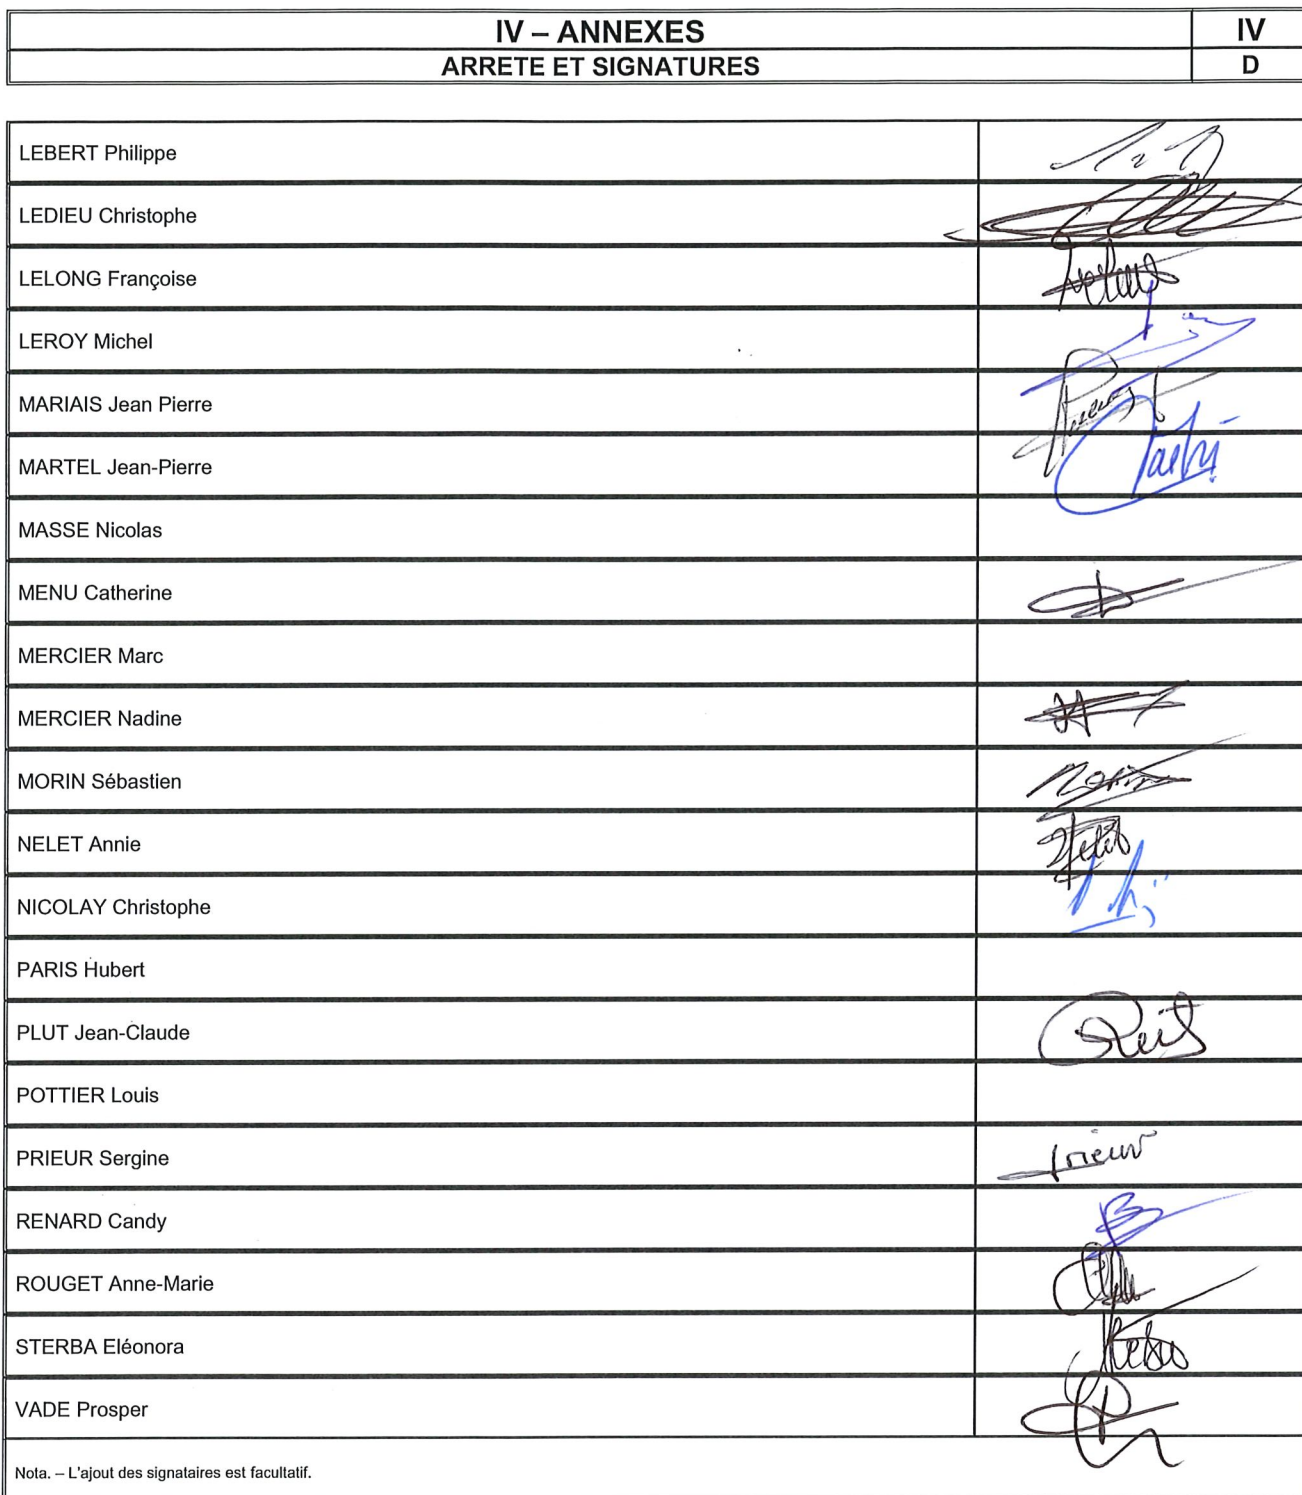 IV – ANNEXES
IV
ARRETE ET SIGNATURES
D
LEBERT Philippe
LEDIEU Christophe
LELONG Françoise
LEROY Michel
MARIAIS Jean Pierre
MARTEL Jean-Pierre
MASSE Nicolas
MENU Catherine
MERCIER Marc
MERCIER Nadine
MORIN Sébastien
NELET Annie
NICOLAY Christophe
PARIS Hubert
PLUT Jean-Claude
POTTIER Louis
PRIEUR Sergine
RENARD Candy
ROUGET Anne-Marie
STERBA Eléonora
VADE Prosper
Nota. – L'ajout des signataires est facultatif.